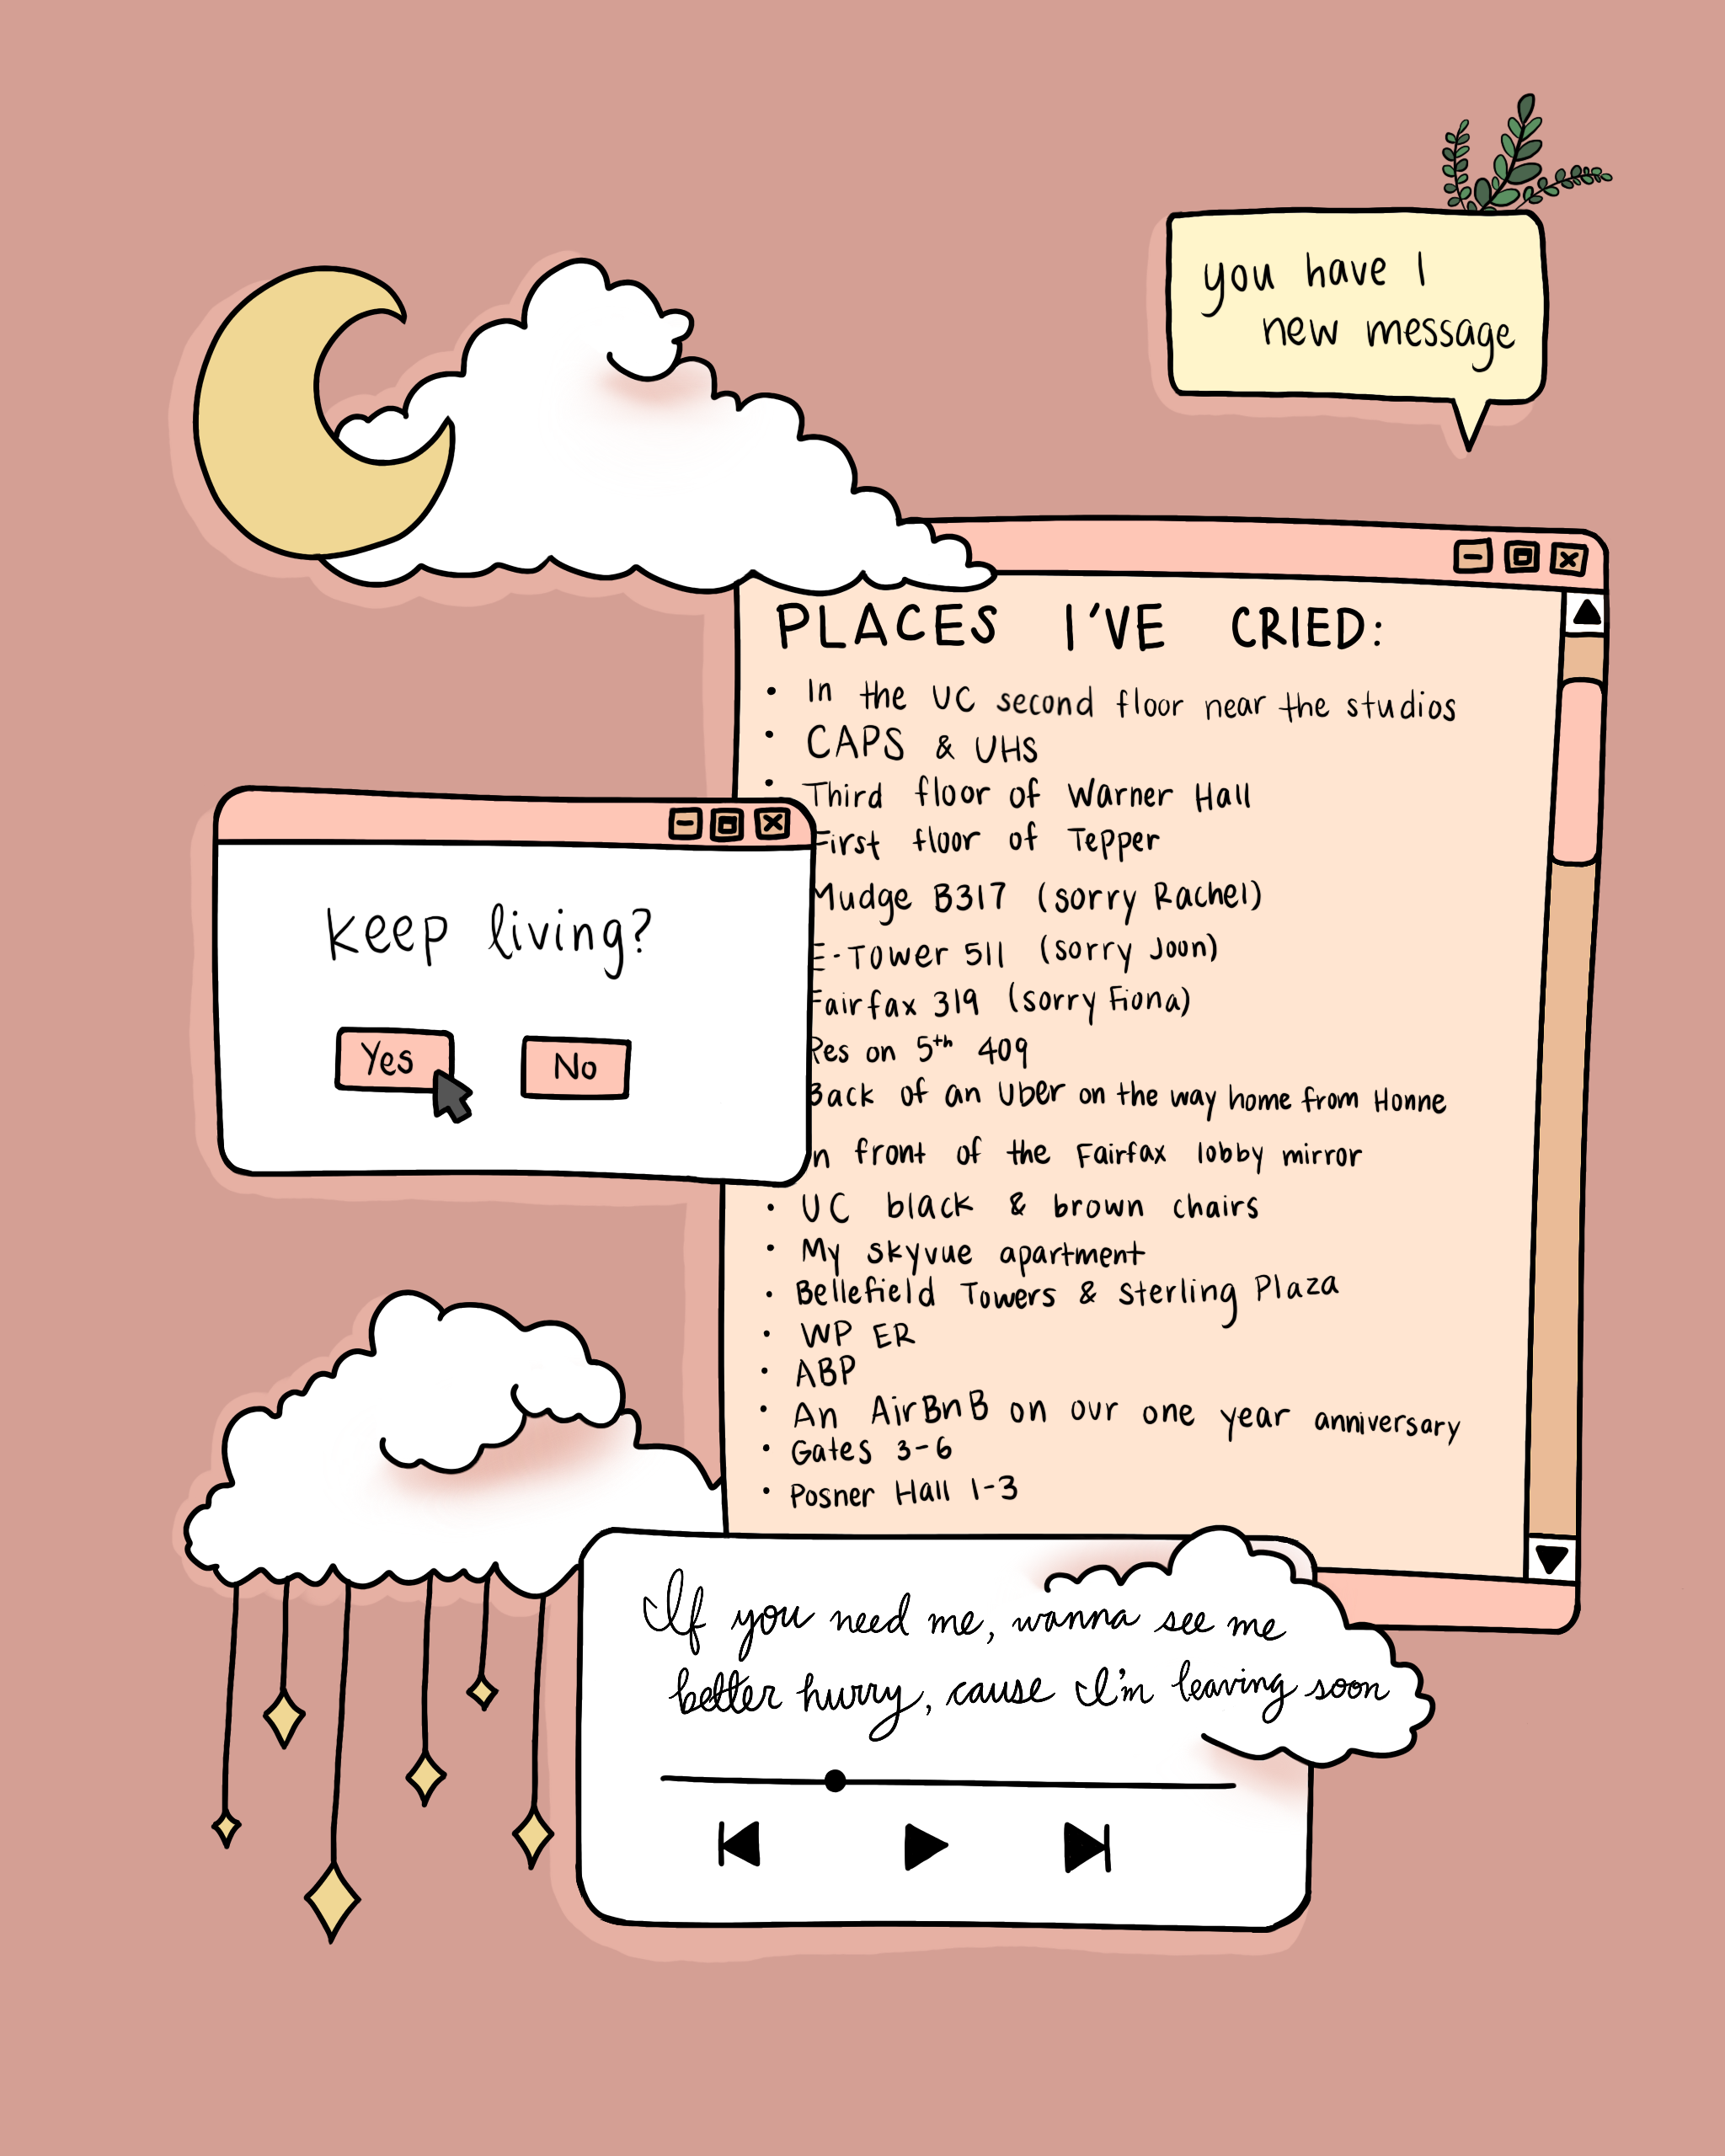 you have 1
new message
PLACES I'VE CRIED:
• In the UC second floor near the studios
• CAPS & UHS
• Third floor of Warner Hall
First floor of Tepper
Mudge B317 (sorry Rachel)
E-Tower 511 (sorry Joon)
Fairfax 319 (sorry Fiona)
Res on 5th 409
Back of an Uber on the way home from Honne
In front of the Fairfax lobby mirror
• UC black & brown chairs
• My skyvue apartment
• Bellefield Towers & Sterling Plaza
• WP ER
• ABP
• An AirBnB on our one year anniversary
• Gates 3-6
• Posner Hall 1-3
keep living?
Yes No
If you need me, wanna see me
better hurry, cause I'm leaving soon